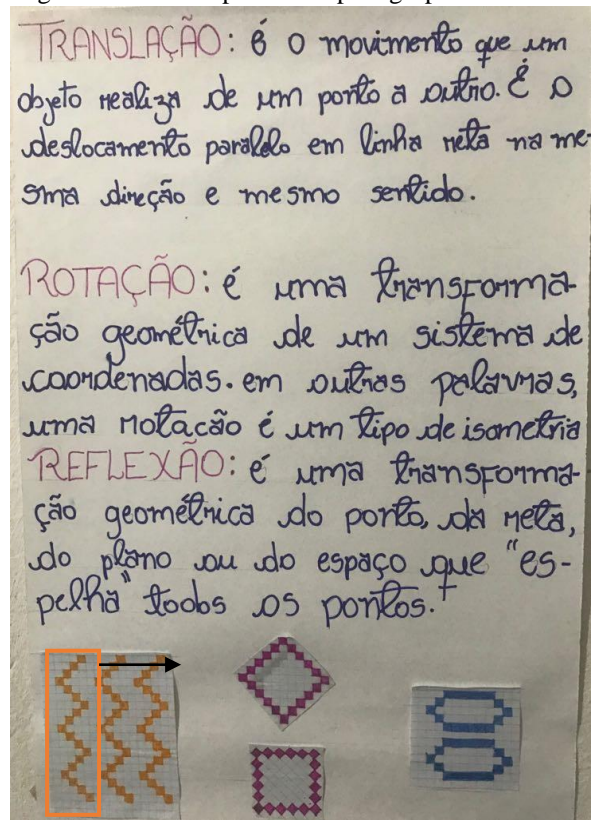 TRANSLAÇÃO: é o movimento que um
objeto realiza de um ponto a outro. É o
deslocamento paralelo em linha reta na me-
sma direção e mesmo sentido.
ROTAÇÃO: é uma transforma-
ção geométrica de um sistema de
coordenadas. em outras palavras,
uma rotacão é um tipo de isometria
REFLEXÃO: é uma transforma-
ção geométrica do ponto, da reta,
do plano ou do espaço que "es-
pelha" toobs os pontos.